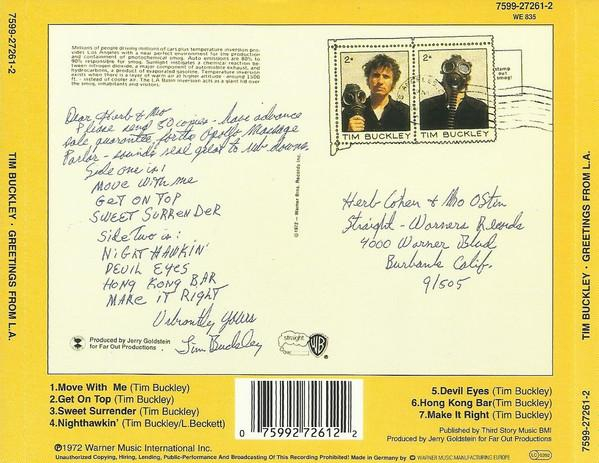 7599-27261-2
WE 835
7599-27261-2
TIM BUCKLEY · GREETINGS FROM L.A.
Millions of people driving millions of cars plus temperature inversion provides Los Angeles with a near perfect environment for the production
and containment of photochemical smog. Auto emissions are 80% to
90% responsible for smog. Sunlight instigates a chemical reaction
between nitrogen dioxide, a major component of automobile exhaust, and
hydrocarbons, a product of evaporated gasoline. Temperature inversion
exists when there is a layer of warm air at higher altitude - around 1500
ft. - instead of cooler air. The L.A. Basin inversion acts as a giant lid over
the smog, inhabitants and visitors.
2¢
TIM BUCKLEY
2¢
TIM BUCKLEY
stamp
out
smog!
1972
Dear Herb & Mo
Please send 50 copies - have advance
sale guarantee for the Apollo Massage
Parlor - sounds real great to rub downs.
Side one is:
MOVE WITH ME
GET ON TOP
SWEET SURRENDER
SIDE TWO is:
NIGHTHAWKIN'
DEVIL EYES
HONG KONG BAR
MAKE IT RIGHT
Vibrantly Yours
Tim Buckley
©1972 - Warner Bros. Records Inc.
Herb Cohen & Mo Ostin
Straight - Warners Records
4000 Warner Blvd
Burbank Calif.
91505
Produced by Jerry Goldstein
for Far Out Productions.
straight
WB
1.Move With Me (Tim Buckley)
2.Get On Top (Tim Buckley)
3.Sweet Surrender (Tim Buckley)
4.Nighthawkin' (Tim Buckley/L.Beckett)
0 75992 72612 2
5.Devil Eyes (Tim Buckley)
6.Hong Kong Bar(Tim Buckley)
7.Make It Right (Tim Buckley)
Published by Third Story Music BMI
Produced by Jerry Goldstein for Far Out Productions
℗©1972 Warner Music International Inc.
Unauthorized Copying, Hiring, Lending, Public-Performance And Broadcasting Of This Record Prohibited. Made in Germany by WARNER MUSIC MANUFACTURING EUROPE
LC 0392
TIM BUCKLEY · GREETINGS FROM L.A.
7599-27261-2